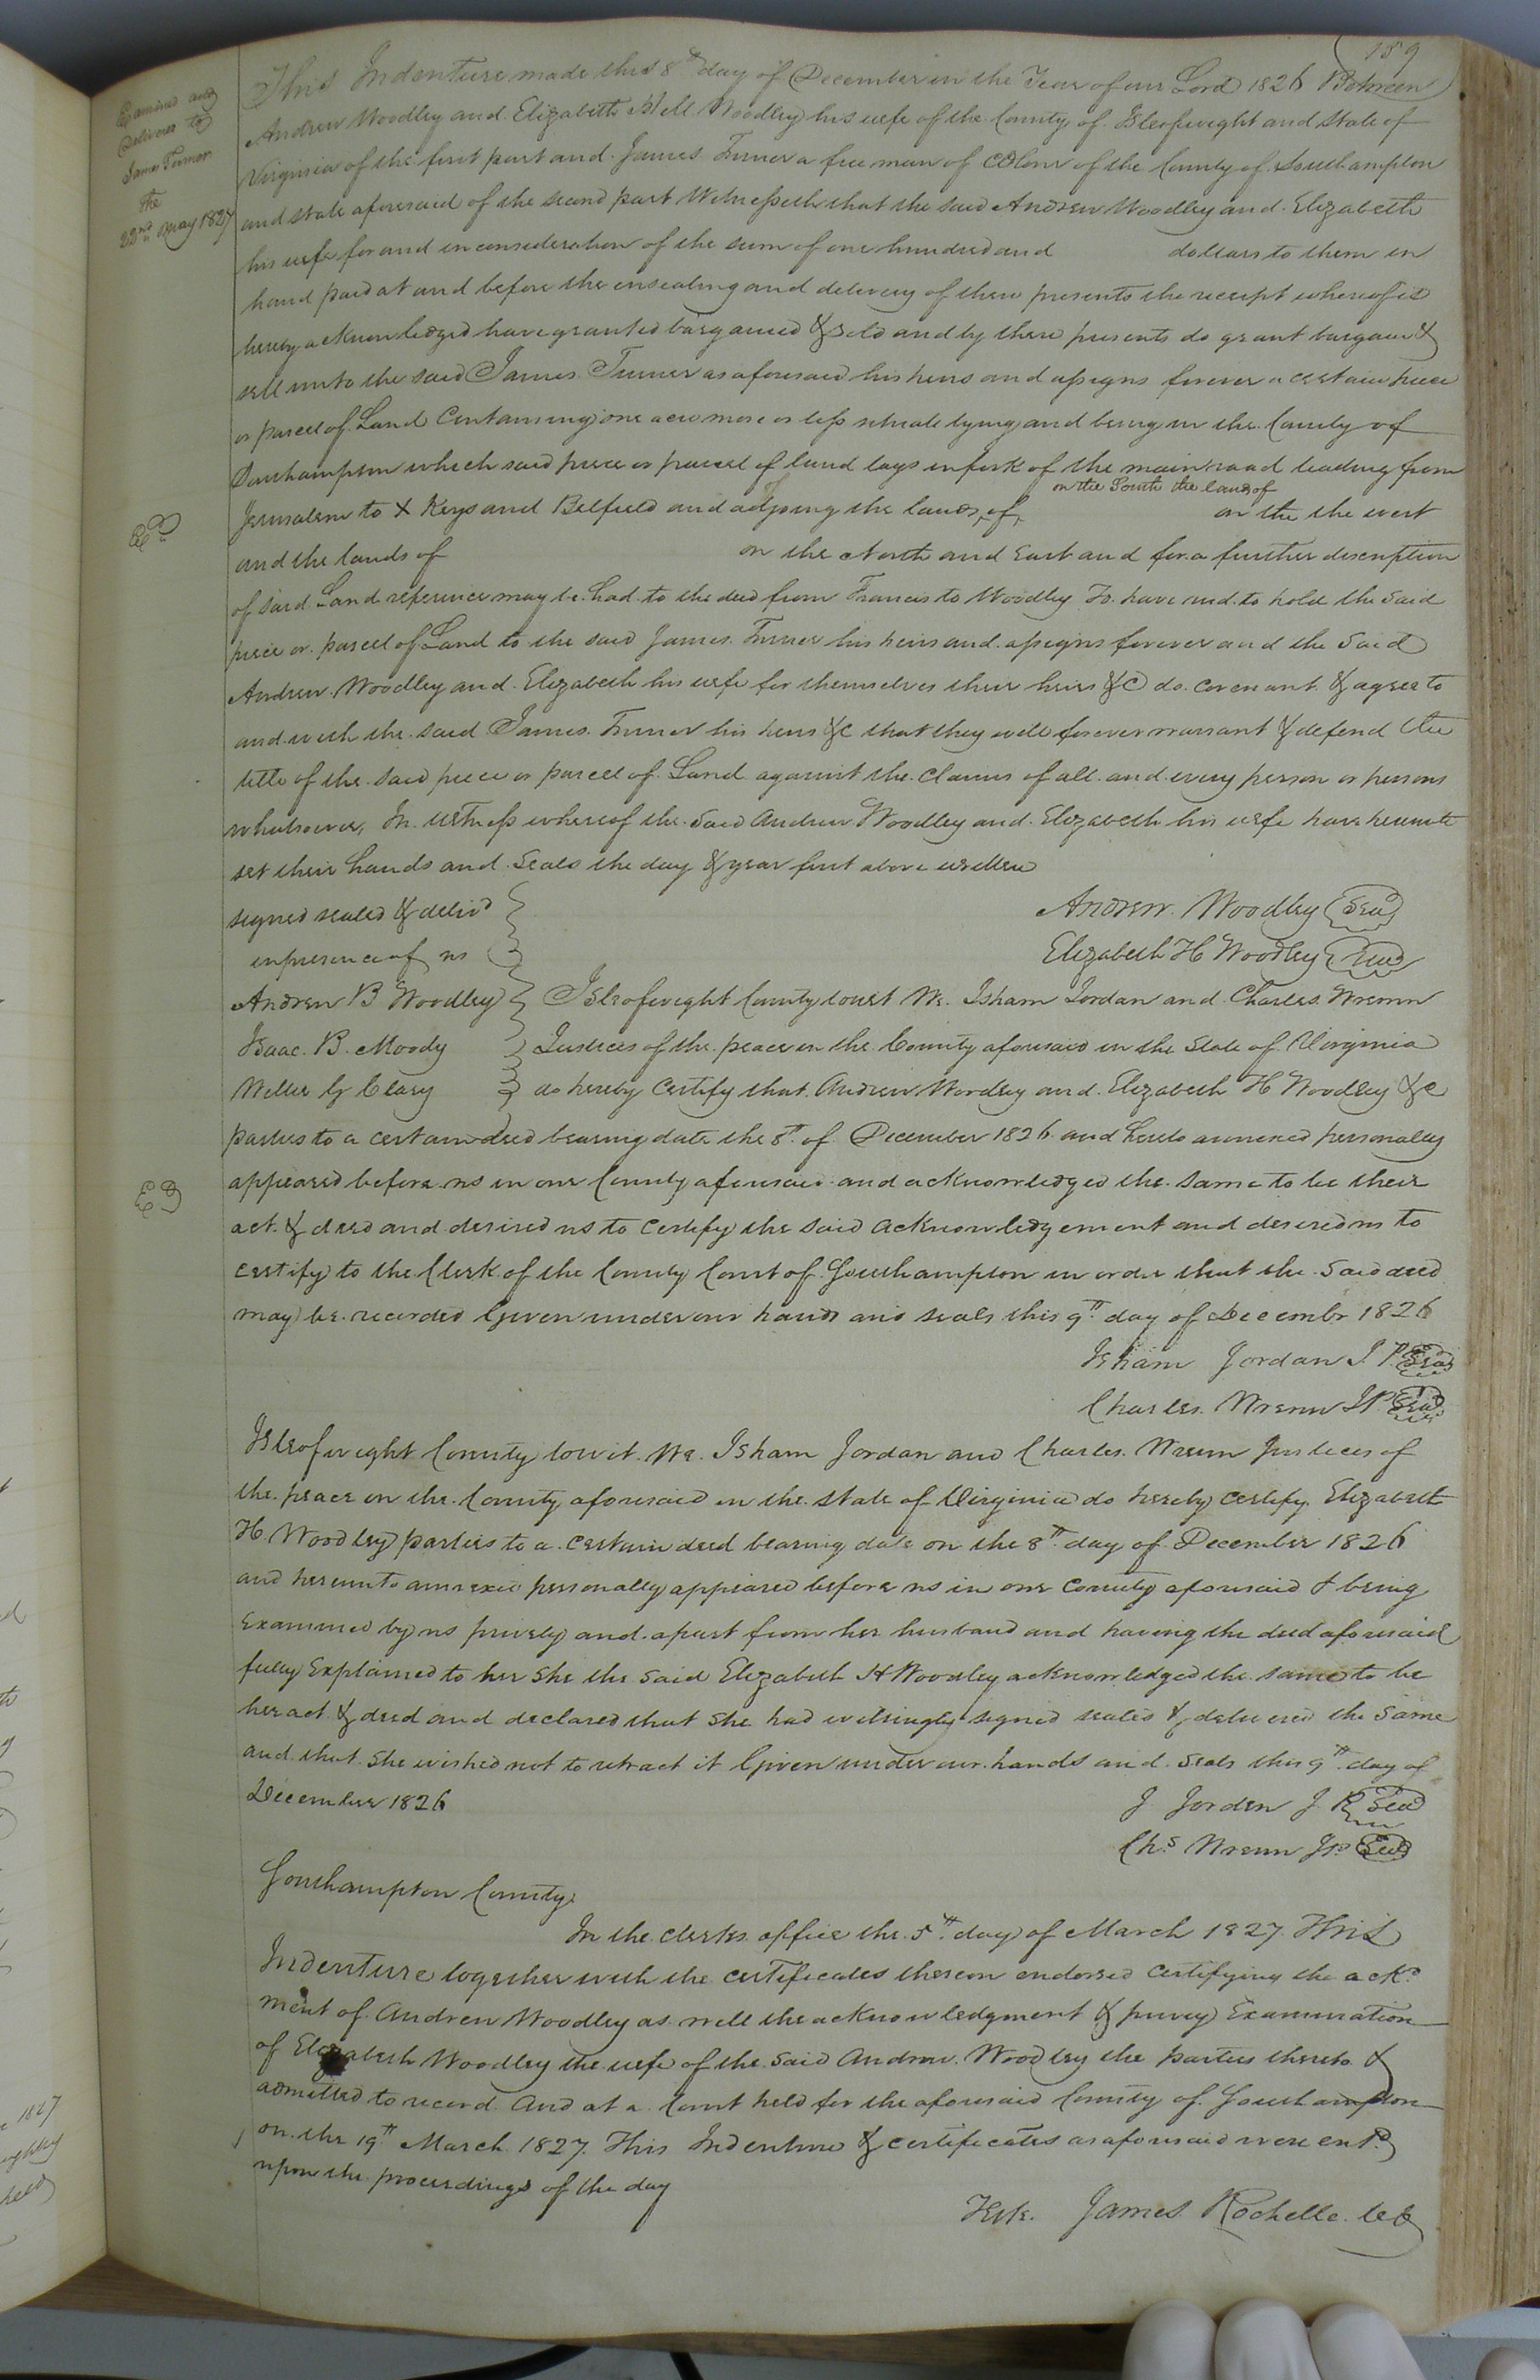 189
Examined and
Delivered to
James Turner
the
22nd May 1827
This Indenture made this 8th day of December in the Year of our Lord 1826 Between
Andrew Woodley and Elizabeth Woodley his wife of the County of Isleofwight and State of
Virginia of the first part and James Turner a free man of Colour of the County of Southampton
and state aforesaid of the second part Witnesseth that the said Andrew Woodley and Elizabeth
his wife for and in consideration of the sum of one hundred and dollars to them in
hand paid at and before the ensealing and delivery of these presents the receipt whereof is
hereby acknowledged have granted bargained & sold and by these presents do grant bargain &
sell unto the said James Turner as aforesaid his heirs and assigns forever a certain piece
or parcel of Land Containing one acre more or less situate lying and being in the County of
Southampton which said piece or parcel of land lays in fork of the main road leading from
on the South the land of
Jerusalem to X Keys and Belfield and adjoing the lands of on the the west
and the lands of on the North and East and for a further description
of said Land reference may be had to the deed from Francis to Woodley To have and to hold the Said
piece or parcel of Land to the said James Turner his heirs and assigns forever and the Said
Andrew Woodley and Elizabeth his wife for themselves their heirs &C do covenant & agree to
and with the said James Turner his heirs &c that they will forever warrant & defend the
title of the said piece or parcel of Land against the Claims of all and every person or persons
whatsoever, In Witness whereof the said Andrew Woodley and Elizabeth his wife have hereunto
set their hands and Seals the day & year first above written
signed sealed & delivd Andrew Woodley Seal
in presence of us Elizabeth H Woodley Seal
Andrew B Woodley Isleofwight County towit We Isham Jordan and Charles Wrenn
Isaac B. Moody Justices of the peace in the County aforesaid in the State of Virginia
Clary do hereby Certify that Andrew Woodley and Elizabeth H Woodley &c
parties to a certain deed bearing date the 8th of December 1826 and hereto annexed personally
appeared before us in our County aforesaid and acknowledged the same to be their
act & deed and desired us to Certify the said acknowledgement and desired us to
certify to the Clerk of the County Court of Southampton in order that the Said deed
may be recorded Given under our hands and seals this 9th day of Decembr 1826
Isham Jordan J.P. Seal
Charles Wrenn JP. Seal
Isleofwight County towit. We. Isham Jordan and Charles Wrenn Justices of
the peace in the County aforesaid in the state of Virginia do hereby certify Elizabeth
H. Woodley parties to a certain deed bearing date on the 8th day of December 1826
and hereunto annexed personally appeared before us in our County aforesaid & being
Examined by us privily and apart from her husband and having the deed aforesaid
fully Explained to her She the Said Elizabeth H Woodley acknowledged the same to be
her act & deed and declared that She had willingly signed sealed & delivered the Same
and that She wished not to retract it Given under our hands and Seals this 9th day of
December 1826 J Jordan J P Seal
Chs Wrenn JP Seal
Southampton County
In the clerks office the 5th day of March 1827 This
Indenture together with the Certificates thereon endorsed Certifying the ackd
ment of Andrew Woodley as well the acknowledgment & privey Examination
of Elizabeth Woodley the wife of the Said Andrew Woodley the parties thereto &
admitted to record And at a Court held for the aforesaid County of Southampton
on the 19th March 1827. This Indenture & certificates as aforesaid were entd
upon the proceedings of the day
Teste. James Rochelle